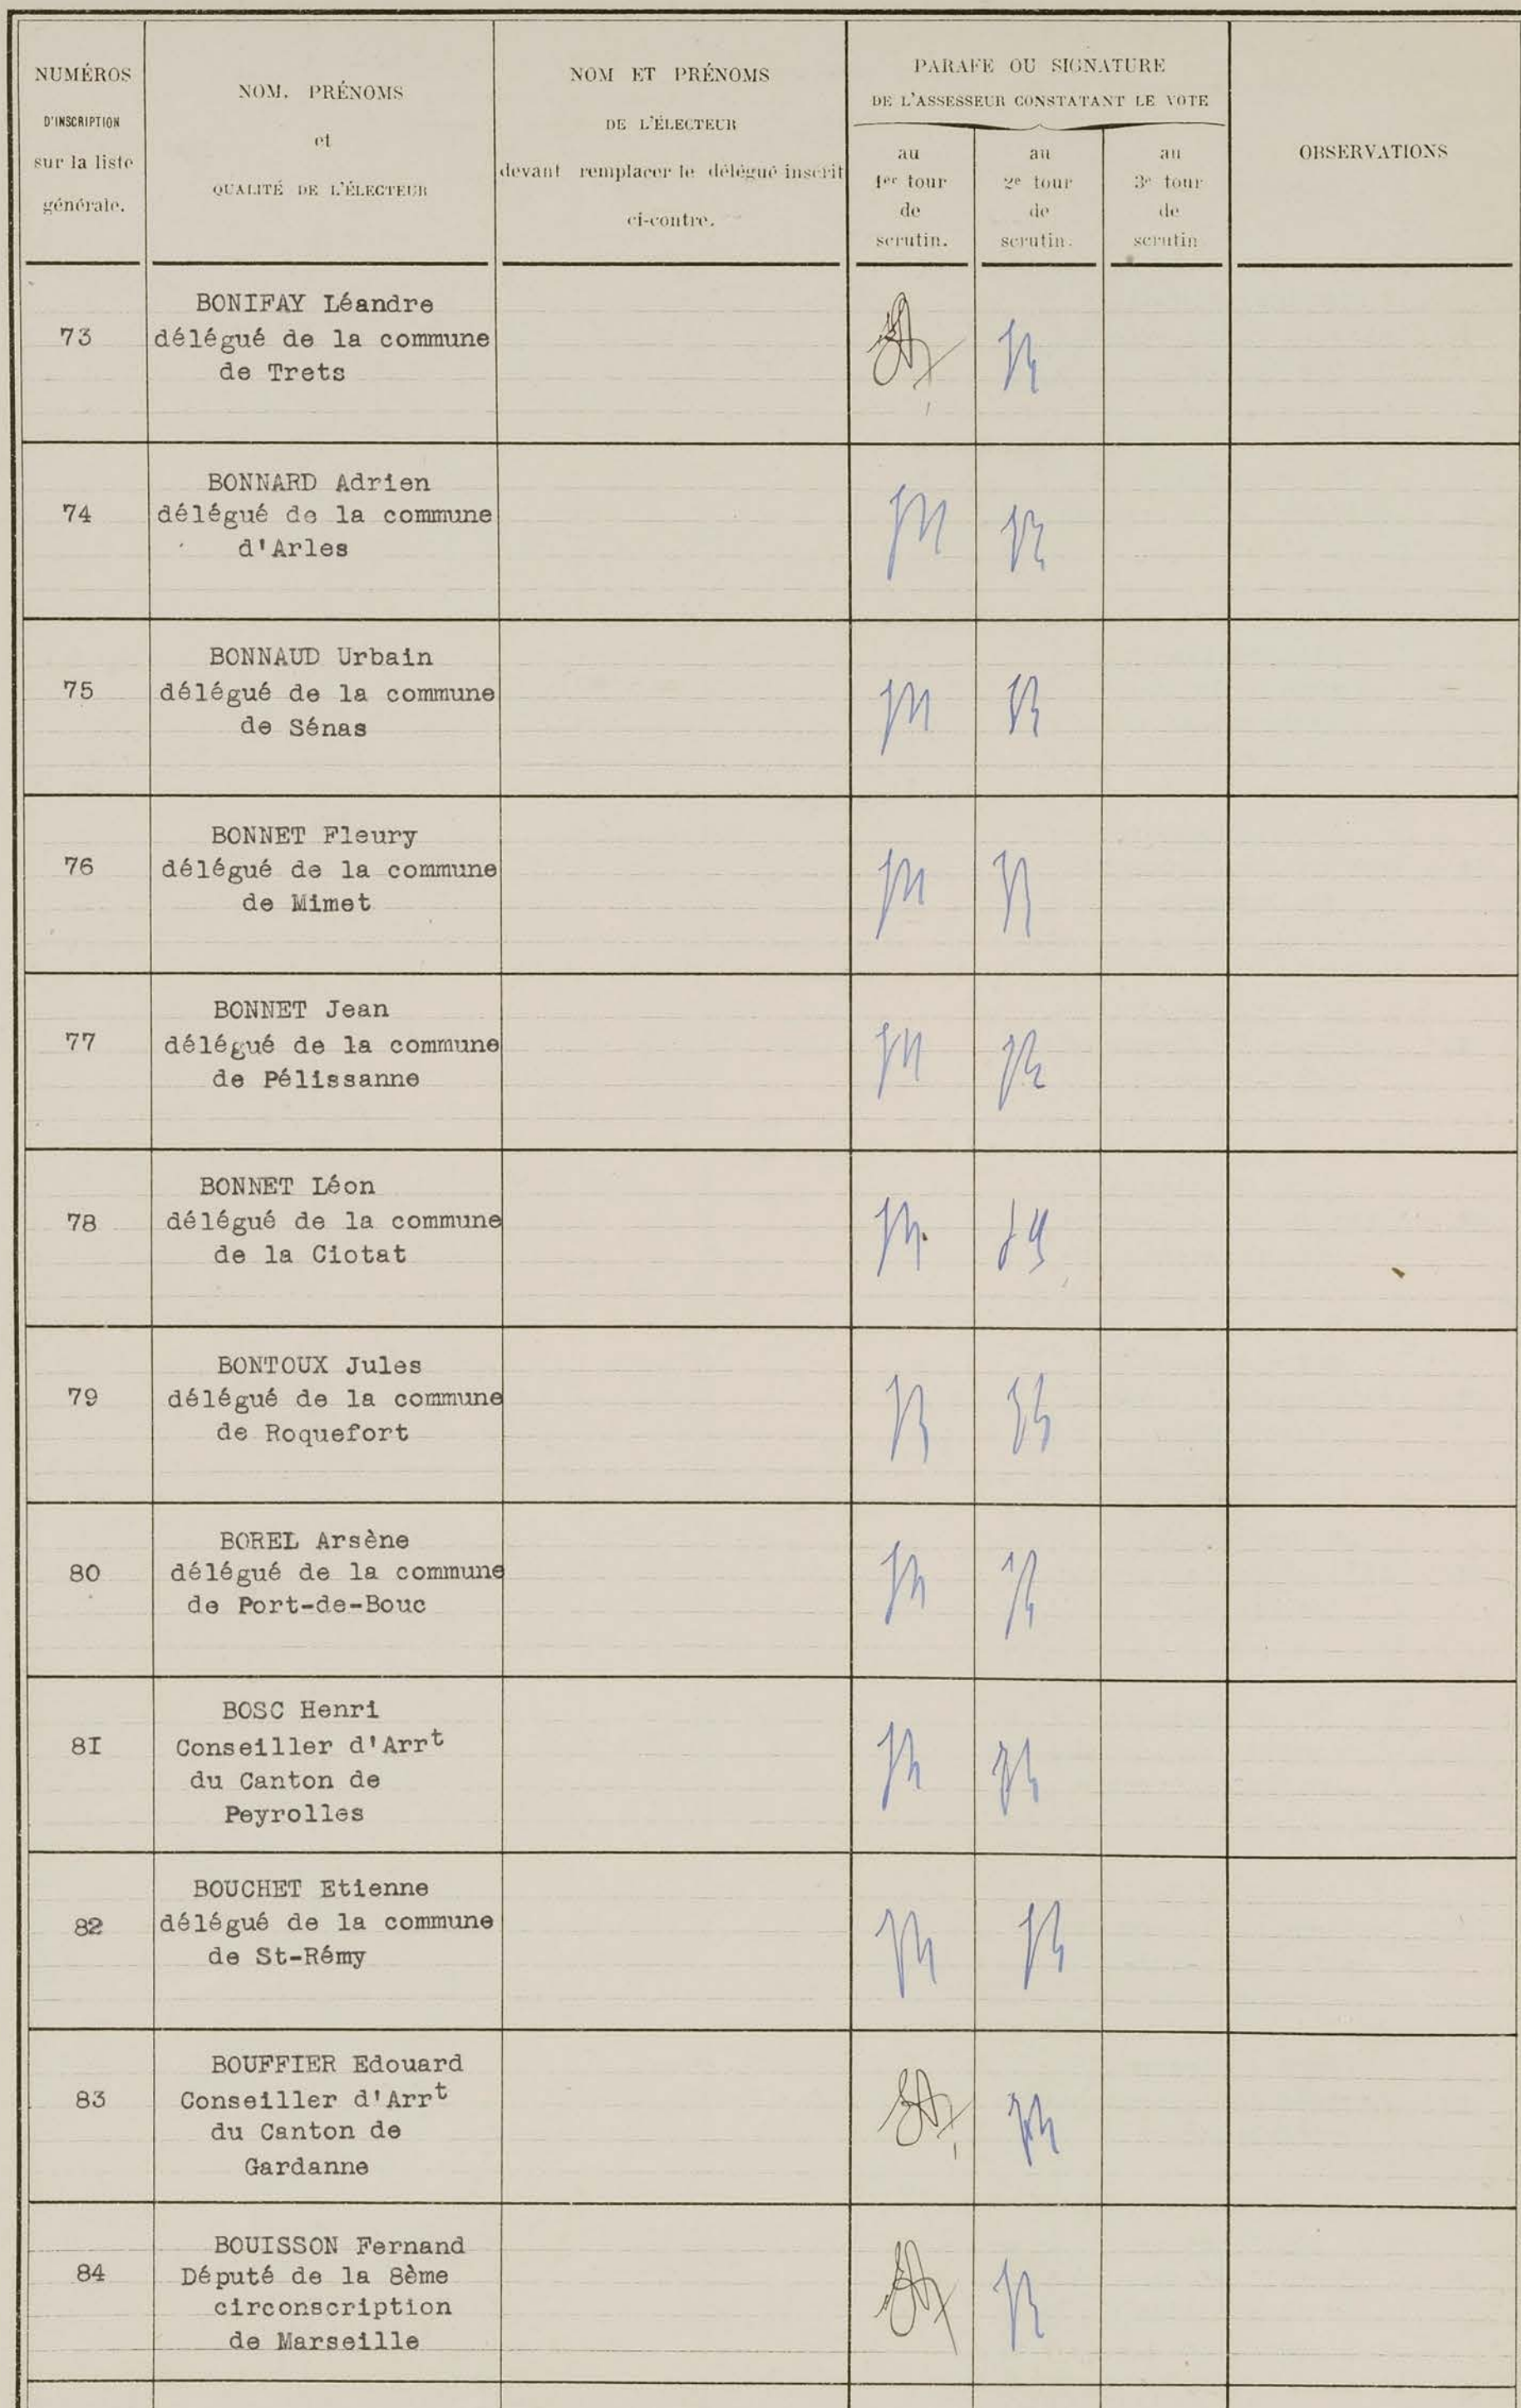 NUMÉROS
D'INSCRIPTION
sur la liste
générale.
NOM, PRÉNOMS
et
QUALITÉ DE L'ÉLECTEUR
NOM ET PRÉNOMS
DE L'ÉLECTEUR
devant remplacer le délégué inscrit
ci-contre.
PARAFE OU SIGNATURE
DE L'ASSESSEUR CONSTATANT LE VOTE
au
1er tour
de
scrutin.
au
2e tour
de
scrutin.
au
3e tour
de
scrutin
OBSERVATIONS
73
BONIFAY Léandre
délégué de la commune
de Trets
74
BONNARD Adrien
délégué de la commune
d'Arles
75
BONNAUD Urbain
délégué de la commune
de Sénas
76
BONNET Fleury
délégué de la commune
de Mimet
77
BONNET Jean
délégué de la commune
de Pélissanne
78
BONNET Léon
délégué de la commune
de la Ciotat
79
BONTOUX Jules
délégué de la commune
de Roquefort
80
BOREL Arsène
délégué de la commune
de Port-de-Bouc
8I
BOSC Henri
Conseiller d'Arrt
du Canton de
Peyrolles
82
BOUCHET Etienne
délégué de la commune
de St-Rémy
83
BOUFFIER Edouard
Conseiller d'Arrt
du Canton de
Gardanne
84
BOUISSON Fernand
Député de la 8ème
circonscription
de Marseille